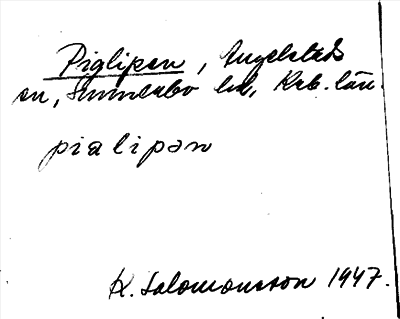 Piglipen, Angelstads
sn, Sunnerbo hd, Krb. län.
pialipən
K. Salomonsson 1947.